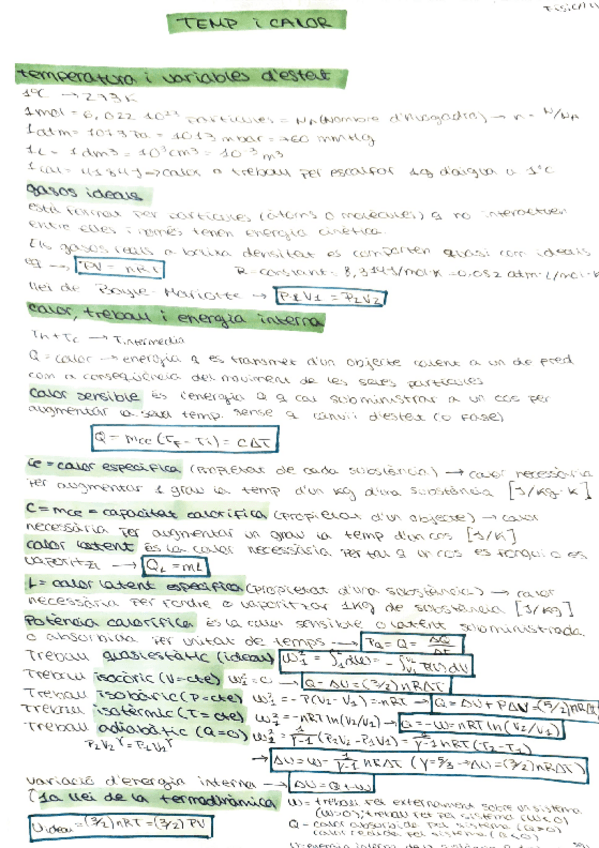 Física
TEMP i CALOR
temperatura i variables d'estat
1ºC → 273K
1mol = 6,022 10²³ partícules = NA (Nombre d'Avogadro) → n = N/NA
1atm = 1013 = 1013 mbar = 760 mmHg
1L = 1dm³ = 10³cm³ = 10⁻³ m³
1 cal = 4184J → calor o treball per escalfar 1g d'aigua a 1ºC
gasos ideals
està format per partícules (àtoms o molècules) q no interactuen
entre elles i només tenen energia cinètica.
Els gasos reals a baixa densitat es comporten quasi com ideals
eq → PV = nRT R = constant = 8,314 J/mol·K = 0,082 atm·L/mol·K
llei de Boyle-Mariotte → P1V1 = P2V2
calor, treball i energia interna
TH + TC → Tintermèdia
Q = calor → energia q es transmet d'un objecte calent a un de fred
com a conseqüència del moviment de les seves partícules
calor sensible és l'energia Q q cal subministrar a un cos per
augmentar la seva temp. sense q canviï d'estat (o fase)
Q = mce (TF - Ti) = CΔT
ce = calor específica (propietat de cada substància) → calor necessària
per augmentar 1 grau la temp d'un kg d'una substància [J/Kg·K]
C = mce = capacitat calorífica (propietat d'un objecte) → calor
necessària per augmentar un grau la temp d'un cos [J/K]
calor latent és la calor necessària per tal q un cos es fongui o es
vaporitzi → QL = mL
L = calor latent específica (propietat d'una substància) → calor
necessària per fondre o vaporitzar 1Kg de substància [J/Kg]
Potència calorífica és la calor sensible o latent subministrada
o absorbida per unitat de temps → PQ = Q̇ = ΔQ/Δt
Treball quasiestàtic (ideal) W₁² = ∫₁²dW = -∫V1V2 P(V)dV
Treball isocòric (V=cte) W₁²=0 → Q=ΔU=(3/2)nRΔT
Treball isobàric (P=cte) W₁²=-P(V2-V1) = → Q=ΔU+PΔV=
Treball isotèrmic (T=cte) W₁²=-nRT ln(V2/V1) → Q=-W=nRT ln(V2/V1)
Treball adiabàtic (Q=0) W₁²=1/γ-1 (P2V2-P1V1)=1/γ-1 nR (T2-T1)
P2V2^γ=P1V1^γ
→ ΔU=W=1/γ-1 nRΔT (γ=5/3→ΔU=(3/2)nRΔT)
variació d'energia interna → ΔU=Q+W
(1a llei de la termodinàmica
W = treball fet externament sobre un sistema
(W>0); treball fet pel sistema (W<0)
U ideal=(3/2)nRT=(3/2)PV
Q = calor absorbida pel sistema (Q>0)
calor cedida pel sistema (Q<0)